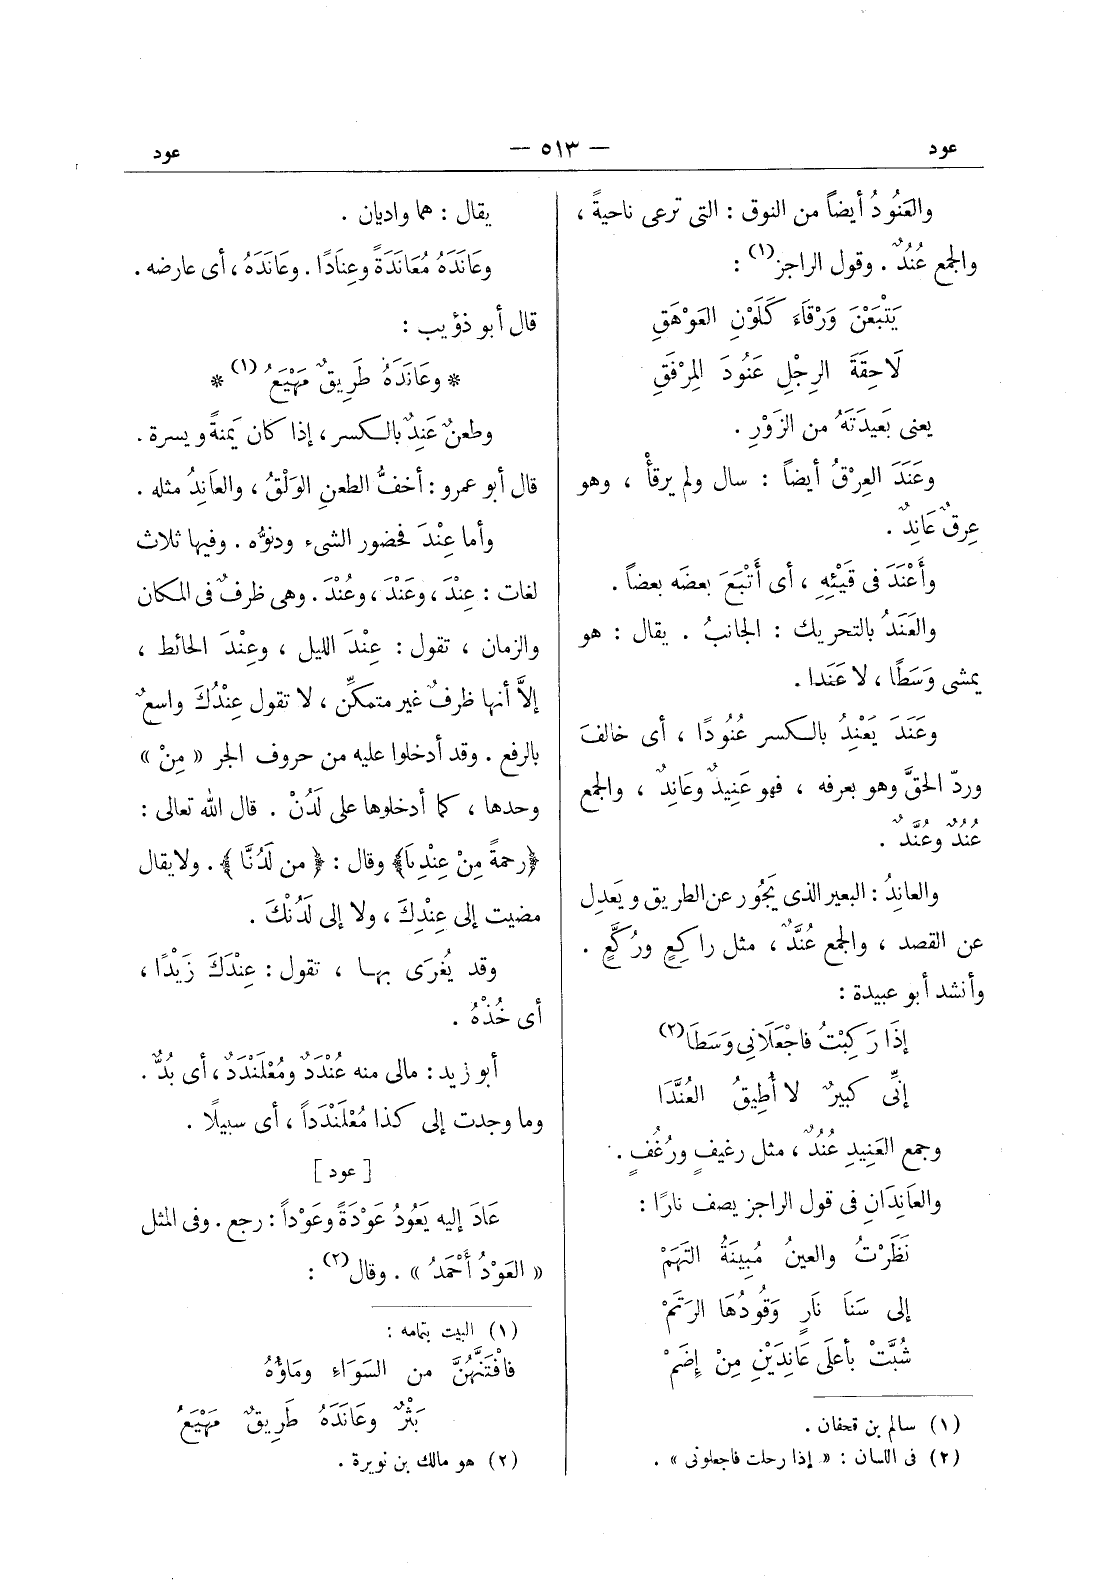 عود
— ٥١٣ —
عود
والعَنُودُ أيضاً من النوق : التى ترعى ناحيةً ،
والجمع عُنُدٌ . وقول الراجز(١) :
يَتْبَعْنَ وَرْقَاءَ كَلَوْنِ العَوْهَقِ
لَاحِقَةَ الرِجْلِ عَنُودَ المِرْفَقِ
يعنى بَعيدَتَهُ من الزَوْرِ .
وعَنَدَ العِرْقُ أيضاً : سال ولم يرقأْ ، وهو
عِرقٌ عَانِدٌ .
وأَعْنَدَ فى قَيْئِهِ ، أى أَتْبَعَ بعضَه بعضاً .
والعَنَدُ بالتحريك : الجانبُ . يقال : هو
يمشى وَسَطًا ، لا عَنَدا .
وعَنَدَ يَعْنِدُ بالكسر عُنُودًا ، أى خالفَ
وردّ الحقَّ وهو يعرفه ، فهو عَنِيدٌ وعَانِدٌ ، والجمع
عُنُدٌ وعُنَّدٌ .
والعانِدُ : البعير الذى يَجُور عن الطريق ويَعدِل
عن القصد ، والجمع عُنَّدٌ ، مثل راكِعٍ ورُكَّعٍ .
وأنشد أبو عبيدة :
إذَا رَكِبْتُ فاجْعَلَانِى وَسَطَا(٢)
إنِّى كبيرٌ لا أُطِيقُ العُنَّدَا
وجمع العَنِيدِ عُنُدٌ ، مثل رغيفٍ ورُغُفٍ .
والعَانِدَانِ فى قول الراجز يصف نارًا :
نَظَرْتُ والعينُ مُبِينَةُ التَهَمْ
إلى سَنَا نَارٍ وَقُودُهَا الرَتَمْ
شُبَّتْ بأعلَى عَانِدَيْنِ مِنْ إضَمْ
(١) سالم بن قحفان .
(٢) فى اللسان : « إذا رحلت فاجعلونى » .
يقال : هما واديان .
وعَانَدَهُ مُعَانَدَةً وعِنَادًا . وعَانَدَهُ ، أى عارضه .
قال أبو ذؤيب :
* وعَانَدَهُ طَرِيقٌ مَهْيَعُ(١) *
وطعنٌ عَنِدٌ بالكسر ، إذا كان يَمنةً ويسرة .
قال أبو عمرو : أخفُّ الطعنِ الوَلْقُ ، والعَانِدُ مثله .
وأما عِنْدَ فحضور الشىء ودنوُّه . وفيها ثلاث
لغات : عِنْدَ ، وعَنْدَ ، وعُنْدَ . وهى ظرفٌ فى المكان
والزمان ، تقول : عِنْدَ الليل ، وعِنْدَ الحائط ،
إلاَّ أنها ظرفٌ غير متمكِّن ، لا تقول عِنْدُكَ واسعٌ
بالرفع . وقد أدخلوا عليه من حروف الجر « مِنْ »
وحدها ، كما أدخلوها على لَدُنْ . قال الله تعالى :
﴿رحمةً مِنْ عِنْدِنَا﴾ وقال : ﴿ من لَدُنَّا ﴾ . ولا يقال
مضيت إلى عِنْدِكَ ، ولا إلى لَدُنْكَ .
وقد يُغرَى بها ، تقول : عِنْدَكَ زَيْدًا ،
أى خُذْهُ .
أبو زيد : مالى منه عُنْدَدٌ ومُعْلَنْدَدٌ ، أى بُدٌّ .
وما وجدت إلى كذا مُعْلَنْدَداً ، أى سبيلًا .
[ عود ]
عَادَ إليه يَعُودُ عَوْدَةً وعَوْداً : رجع . وفى المثل
« العَوْدُ أَحْمَدُ » . وقال(٢) :
(١) البيت بتمامه :
فافْتَنَّهُنَّ من السَوَاءِ ومَاؤُهُ
بَثْرٌ وعَانَدَهُ طَرِيقٌ مَهْيَعُ
(٢) هو مالك بن نويرة .